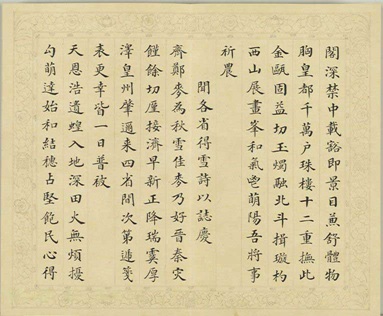 閣深禁中載豁即景目兼舒體物
胸皇都千萬戶珠樓十二重撫此
金甌固益切玉燭融北斗揖璇杓
西山展畫峯和氣鬯萌陽吾將事
祈農
聞各省得雪詩以誌慶
齊鄭麥為秋雪佳麥乃好晉秦災
饉餘切廑接濟早新正降瑞霙厚
澤皇州肇來四省聞次第連箋
表更幸皆一日普被
天恩浩遺蝗入地深田火無煩擾
勾萌達始和結穗占堅飽民心得